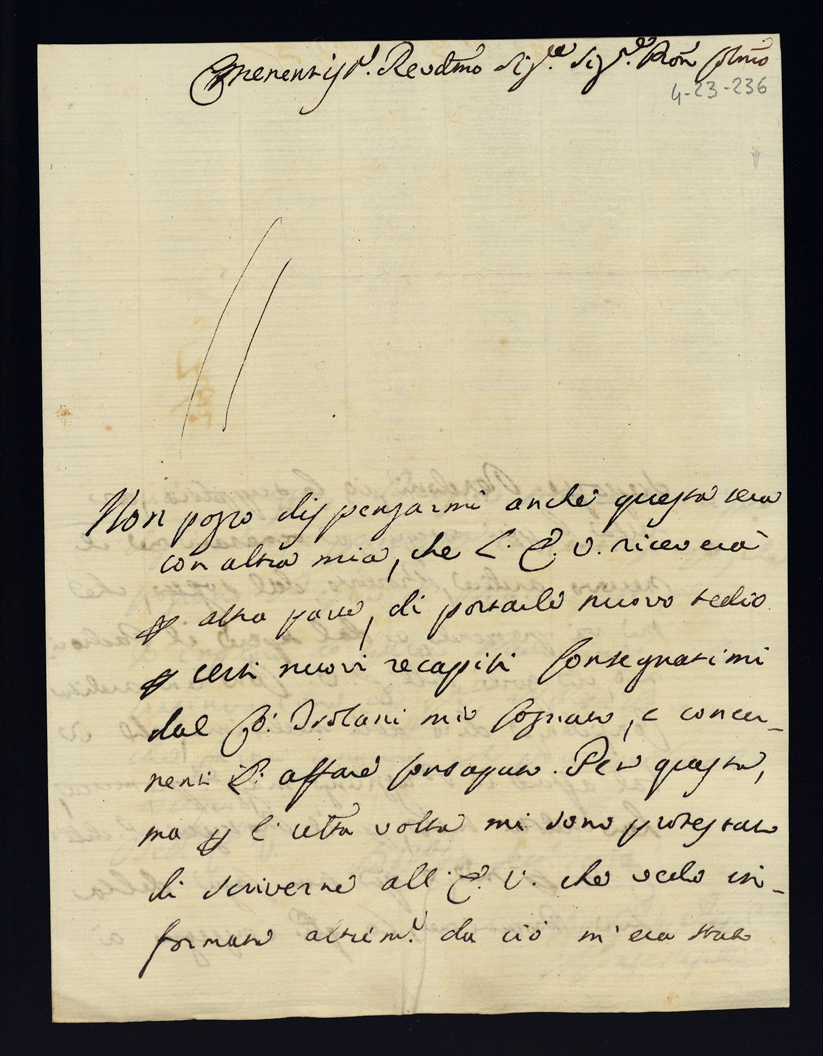 Eminentiss.º Revdmo Sig.re Sig.re Pron Colmo
4-23-236
Non posso dispensarmi anche questa sera
con altra mia, che l'E. V. riceverà
altra parte, di portarle nuovo tedio
certi nuovi recapiti consegnatimi
dal Isolani mio cognato, e concer-
nenti affare consaputo. Per questa,
ma l' volta mi sono protestato
di scriverne all' E. V. che vedo in-
formata altrim.ti da ciò m'era stato